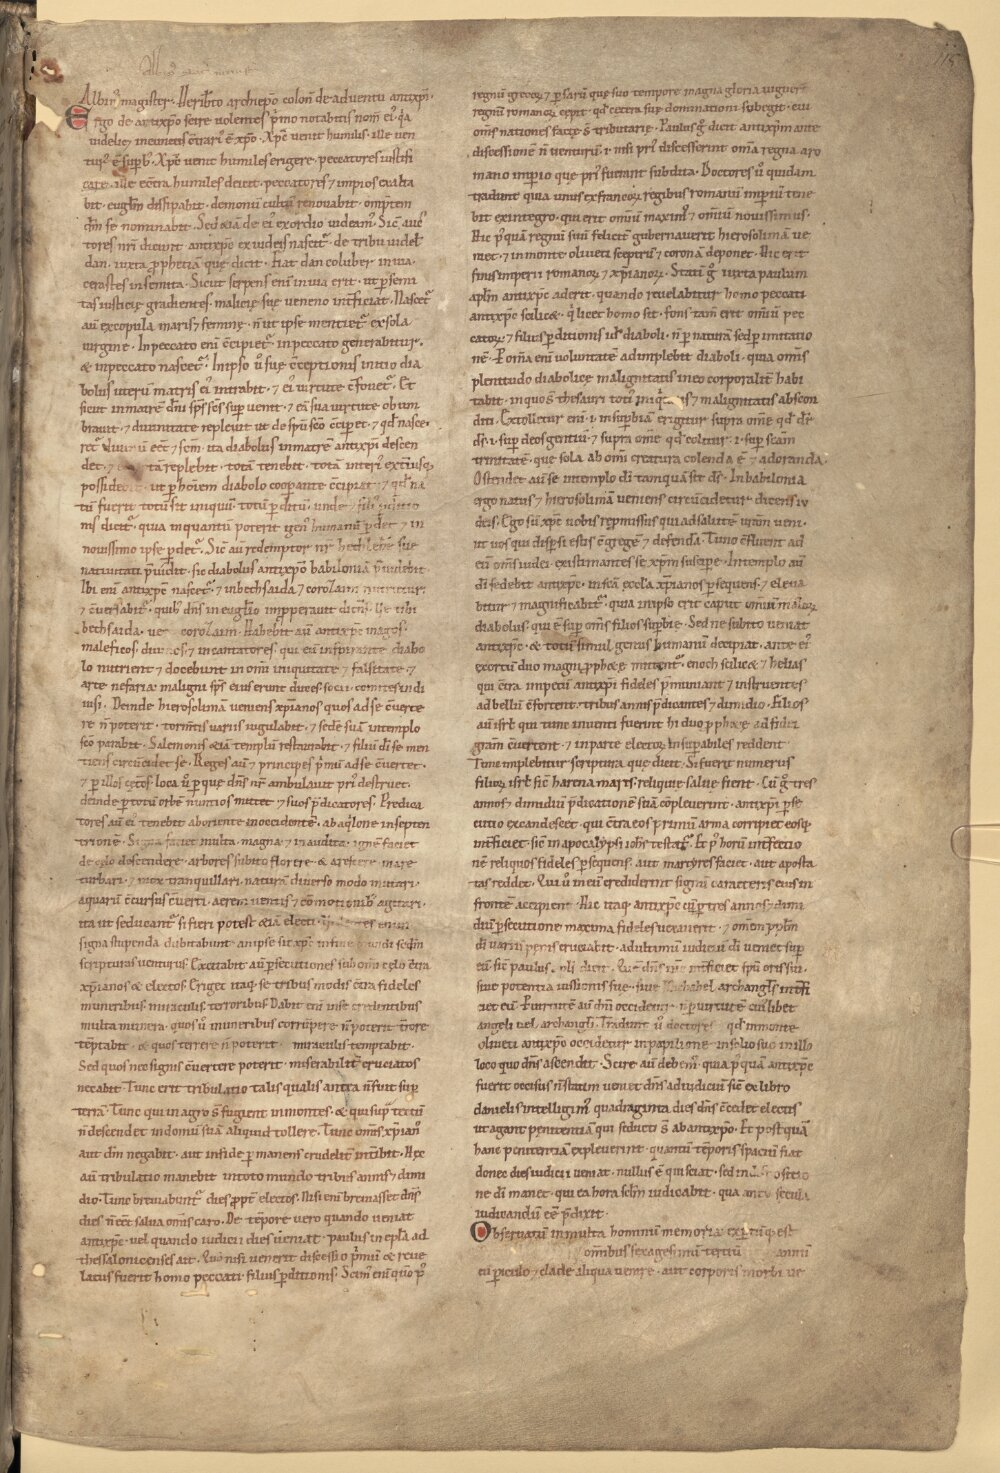 Albin⁹ magister. Heriƀto archiep̄o colon̄ de adventu antixp̄i.
Ergo de antixp̄o scire volentes p̄mo notabitis
t̄ur⁹ ē sup̄b⁹. Xp̄c venit humiles erigere. peccatores iustifi
care. ille ec̄tra humiles deiciet. peccatores ⁊ impios exalta
bit. eug̅lm̄ dissipabit. demonū cultū renovabit. om̄ptem
dm̄ se nominabit. Sed &iā de ei⁹ exordio videam⁹. Sic̄ auc
tores nr̄i dicunt antixp̄c ex iudeis nascet̄. de tribu videl̄
dan. iuxta p̄phetiam que dicit. Fiat dan coluber in via.
cerastes in semita. Sicut serpens eni in via erit. ut p̄ semi
tas iusticie gradientes. malicie sue veneno int̄ficiat. Nascet̄
aū ex copula maris ⁊ femine. n̄ ut ipse mentiet̄ ex sola
virgine. In peccato eni c̄cipiet̄. in peccato generabitur.
& in peccato nascet̄. In ipso ū sue c̄ceptionis initio dia
bolus uterū matris ei⁹ intrabit. ⁊ ei⁹ virtute c̄fovet̄. Et
sicut in matrē dn̄i sp̄s sc̄s sup̄ venit. ⁊ eā sua virtute obum
bravit. ⁊ divinitate replevit ut de sp̄u sc̄o c̄cipet. ⁊ qd̄ nasce
ita diabolus in matrem antixp̄i descen
det. ⁊ tā replebit. totā tenebit. totā
ut p̄ hōiem diabolo coop̄ante c̄cipiat. ⁊ qd̄ na
tū fuerit totū sit iniquū. totū p̄ditū. unde ⁊ fili⁹ p̄ditio
nis dicit̄. quia in quantū poterit gen⁹ humanū p̄det. ⁊ in
novissimo ipse p̄det̄. Sic aū redemptor nr̄ bethleem sue
nativitati p̄vidit. sic diabolus antixp̄o babiloniā p̄videbit.
Ibi eni antixp̄c nascet̄. ⁊ in bethsaida ⁊ corozaim nutritur
⁊ c̄versabit̄. quib⁹ dn̄s in eug̅lio imp̄peravit dicens. Ue tibi
bethsaida. ve corozaim. Habebit aū antixp̄c magos.
maleficos. divinos. ⁊ incantatores. qui eum inspirante diabo
lo nutrient ⁊ docebunt in om̄i iniquitate ⁊ falsitate. ⁊
arte nefaria. maligni sp̄s eius erunt duces. socii. comites indi
visi. Deinde hierosolimā veniens xp̄ianos quos ad se c̄vertere
n̄ poterit. torm̄tis variis iugulabit. ⁊ sedē suā in templo
sc̄o parabit. Salemonis &iā templū restaurabit. ⁊ filiū di se men
tiens circūcidet se. Reges aū ⁊ principes p̄mū ad se c̄vertet.
⁊ p̄ illos cet̄os. loca ū p̄ que dn̄s nr̄ ambulavit pri⁹ destruet.
deinde p̄ totū orbē nūntios mittet ⁊ suos p̄dicatores. Predica
tores aū ei⁹ tenebit ab oriente in occidentē. ab aq̄lone in septen
trionē. Signa faciet multa. magna ⁊ inaudita. ignē faciet
de celo descendere. arbores subito florere & arescere. mare
turbari. ⁊ mox tranquillari. naturā diverso modo mutari.
aquarū c̄cursus c̄verti. aerem ventis ⁊ cōmotionib⁹ agitari.
ita ut seducant̄ si fieri potest &iā electi.
signa stupenda dubitabunt an ipse sit xp̄c in fine mundi sc̄dm
scripturas venturus. Excitabit aū p̄secutiones sub om̄i celo c̄tra
xp̄ianos & electos. Eriget itaq̄ se tribus modis c̄tra fideles
muneribus. miraculis. terroribus. Dabit eni in se credentibus
multa munera. quos ū muneribus corrūpere n̄ poterit t̄rore
tēptabit. & quos terrere n̄ poterit miraculis temptabit.
Sed quos nec signis c̄vertere poterit. miserabilit̄ cruciatos
necabit. Tunc erit tribulatio talis qualis antea n̄ fuit sup̄
terrā. Tunc qui in agro s̄ fugient in montes. & qui sup̄ tectū
n̄ descendet in domū suā aliquid tollere. Tunc om̄is xp̄ian⁹
aut dm̄ negabit. aut in fide p̄manens crudelit̄ int̄ibit. Hec
aū tribulatio manebit in toto mundo tribus annis ⁊ dimi
dio. Tunc breviabunt̄ dies p̄pt̄ electos. Nisi eni breviasset dn̄s
dies n̄ eēt salva om̄is caro. De tēpore vero quando veniat
antixp̄c. vel quando iudicii dies veniat. paulus in ep̄la ad
thessalonicenses ait. Quō nisi venerit discessio p̄mū & reve
latus fuerit homo peccati. filius p̄ditionis. Scim⁹ eni quō p̄
regnū grecor̄ ⁊ p̄sarū que suo tempore magna gloria viguer̄
regnū romanor̄ cepit. qd̄ cetera sue dominationi subegit. cui
om̄s nationes facte s̄ tributarie. Paulus g̅ dicit antixp̄m ante
discessionē n̄ venturū. i. nisi pri⁹ discesserint om̄a regna a ro
mano imp̄io que pri⁹ fuerant subdita. Doctores ū quidam
tradunt quia unus ex francor̄ regibus romanū imp̄iū tene
bit ex integro. qui erit om̄iū maxim⁹ ⁊ om̄iū novissimus.
Hic p⁹quā regnū suū felicit̄ gubernaverit hierosolimā ve
niet. ⁊ in monte oliveti sceptrū ⁊ coronā deponet. Hic erit
finis imperii romanor̄ ⁊ xp̄ianor̄. Statī g̅ iuxta paulum
apl̄m antixp̄c aderit. quando revelabitur homo peccati
antixp̄c scilic&. q̄ licet homo sit. fons tam̄ erit om̄iū pec
cator̄ ⁊ filius p̄ditionis id̄ diaboli. n̄ p̄ naturā sed p̄ imitatio
nē. P̄ om̄a eni voluntatē adimplebit diaboli. quia om̄is
plenitudo diabolice malignitatis in eo corporalit̄ habi
tabit. in quo s̄ thesauri toti⁹ iniq̄tatis ⁊ malignitatis abscon
diti. Extolletur eni. i. in sup̄biam erigitur supra om̄e qd̄ dr̄
ds̄. i. sup̄ deos gentiū. ⁊ supra om̄e qd̄ colitur. i. sup̄ sc̄am
trinitatē. que sola ab om̄i creatura colenda ē ⁊ adoranda.
Ostendet aū se in templo di tamquā sit ds̄. In babilonia
ergo natus ⁊ hierosolimā veniens circūcidetur dicens iu
deis. Ego sū xp̄c vobis rep̄missus qui ad salutē vr̄am veni.
ut vos qui disp̄si estis c̄gregē ⁊ defendā. Tunc c̄fluent ad
eū om̄s iudei. existimantes se xp̄m suscip̄e. In templo aū
di sedebit antixp̄c. in sc̄a eccl̄a xp̄ianos p̄sequens. ⁊ eleva
bitur ⁊ magnificabit̄. quia in ipso erit caput om̄iū malor̄
diabolus. qui ē sup̄ om̄s filios sup̄bie. Sed ne subito veniat
antixp̄c. & totū simul genus humanū decipiat. ante ei⁹
exortū duo magni p̄phe mittent̄. enoch scilic& ⁊ helias
qui c̄tra impetū antixp̄i fideles p̄muniant ⁊ instruentes
ad bellū c̄fortent. tribus annis p̄dicantes ⁊ dimidio. Filios
aū isrl̄ qui tunc inventi fuerint hi duo p̄phe ad fidei
gr̄am c̄vertent. ⁊ in parte elector̄ insup̄abiles reddent.
Tunc implebitur scriptura que dicit. Si fuerit numerus
filior̄ isrl̄ sic̄ harena maris. reliquie salve fient. Cū g̅ tres
annos ⁊ dimidiū p̄dicationē suā cōpleverint. antixp̄i p̄se
cutio excandescet. qui c̄tra eos primū arma corripiet eosq̄
int̄ficiet. sic̄ in apocalypsi ioh̄s testat̄. Et p⁹ horū int̄fectio
nē reliquos fideles p̄sequens. aut martyres faciet. aut aposta
tas reddet. Qui ū in eū crediderint signū caracteris eius in
fronte accipient. Hic itaq̄ antixp̄c cū p̄ tres annos ⁊ dimi
diū p̄secutione maxima fideles vexaverit. ⁊ om̄em pp̄lm̄
di variis penis cruciabit. ad ultimū iudiciū di veniet sup̄
eū. sic̄ paulus dicit. Quē dn̄s int̄ficiet sp̄u oris sui.
sive potentia iussionis sue. sive michahel archangl̄s int̄fi
ciet eū. P̄ virtutē aū dn̄i occidetur. n̄ p̄ virtutē cui⁹libet
angeli vel archangl̄i. Tradunt ū doctores qd̄ in monte
oliveti antixp̄c occidetur in papilione in solio suo in illo
loco quo dn̄s ascendit. Scire aū debem⁹. quia p⁹quā antixp̄c
fuerit occisus n̄ statim veniet dn̄s ad iudiciū. sic̄ ex libro
danielis intelligim⁹. quadraginta dies dn̄s c̄cedet electis
ut agant penitentiā qui seducti s̄ ab antixp̄o. Et postquā
hanc penitentiā expleverint. quantū tēporis spaciū fiat
donec dies iudicii veniat. nullus ē qui sciat. sed in dispositio
ne di manet. qui ea hora sclm̄ iudicabit. qua ante secula
iudicandū eē p̄dixit.
Observatū in multa hominū memoria exp̄tūq̄ est
omibus sexagesimū tertiū annū
cū p̄iculo ⁊ clade aliqua venire. aut corporis morbi ve